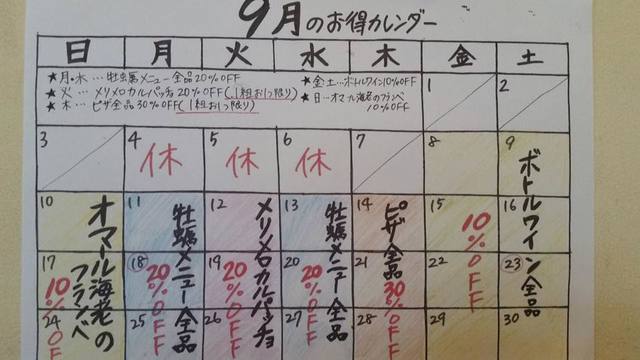 9月のお得カレンダー
日 月 火 水 木 金 土
★月・水…牡蠣メニュー全品20%OFF
★火…メリメロカルパッチョ20%OFF(1組お1つ限り)
★木…ピザ全品30%OFF(1組お1つ限り)
★金土…ボトルワイン10%OFF
★日…オマール海老のフランベ
10%OFF
1 2
3 4 5 6 7 8 9
休 休 休
10 11 12 13 14 15 16
17 18 19 20 21 22 23
24 25 26 27 28 29 30
オマール海老のフランベ
10%OF
牡蠣メニュー全品
20%OFF
メリメロカルパッチョ
20%OFF
牡蠣メニュー全品
20%OFF
ピザ全品
30%OFF
ボトルワイン全品
10%OFF